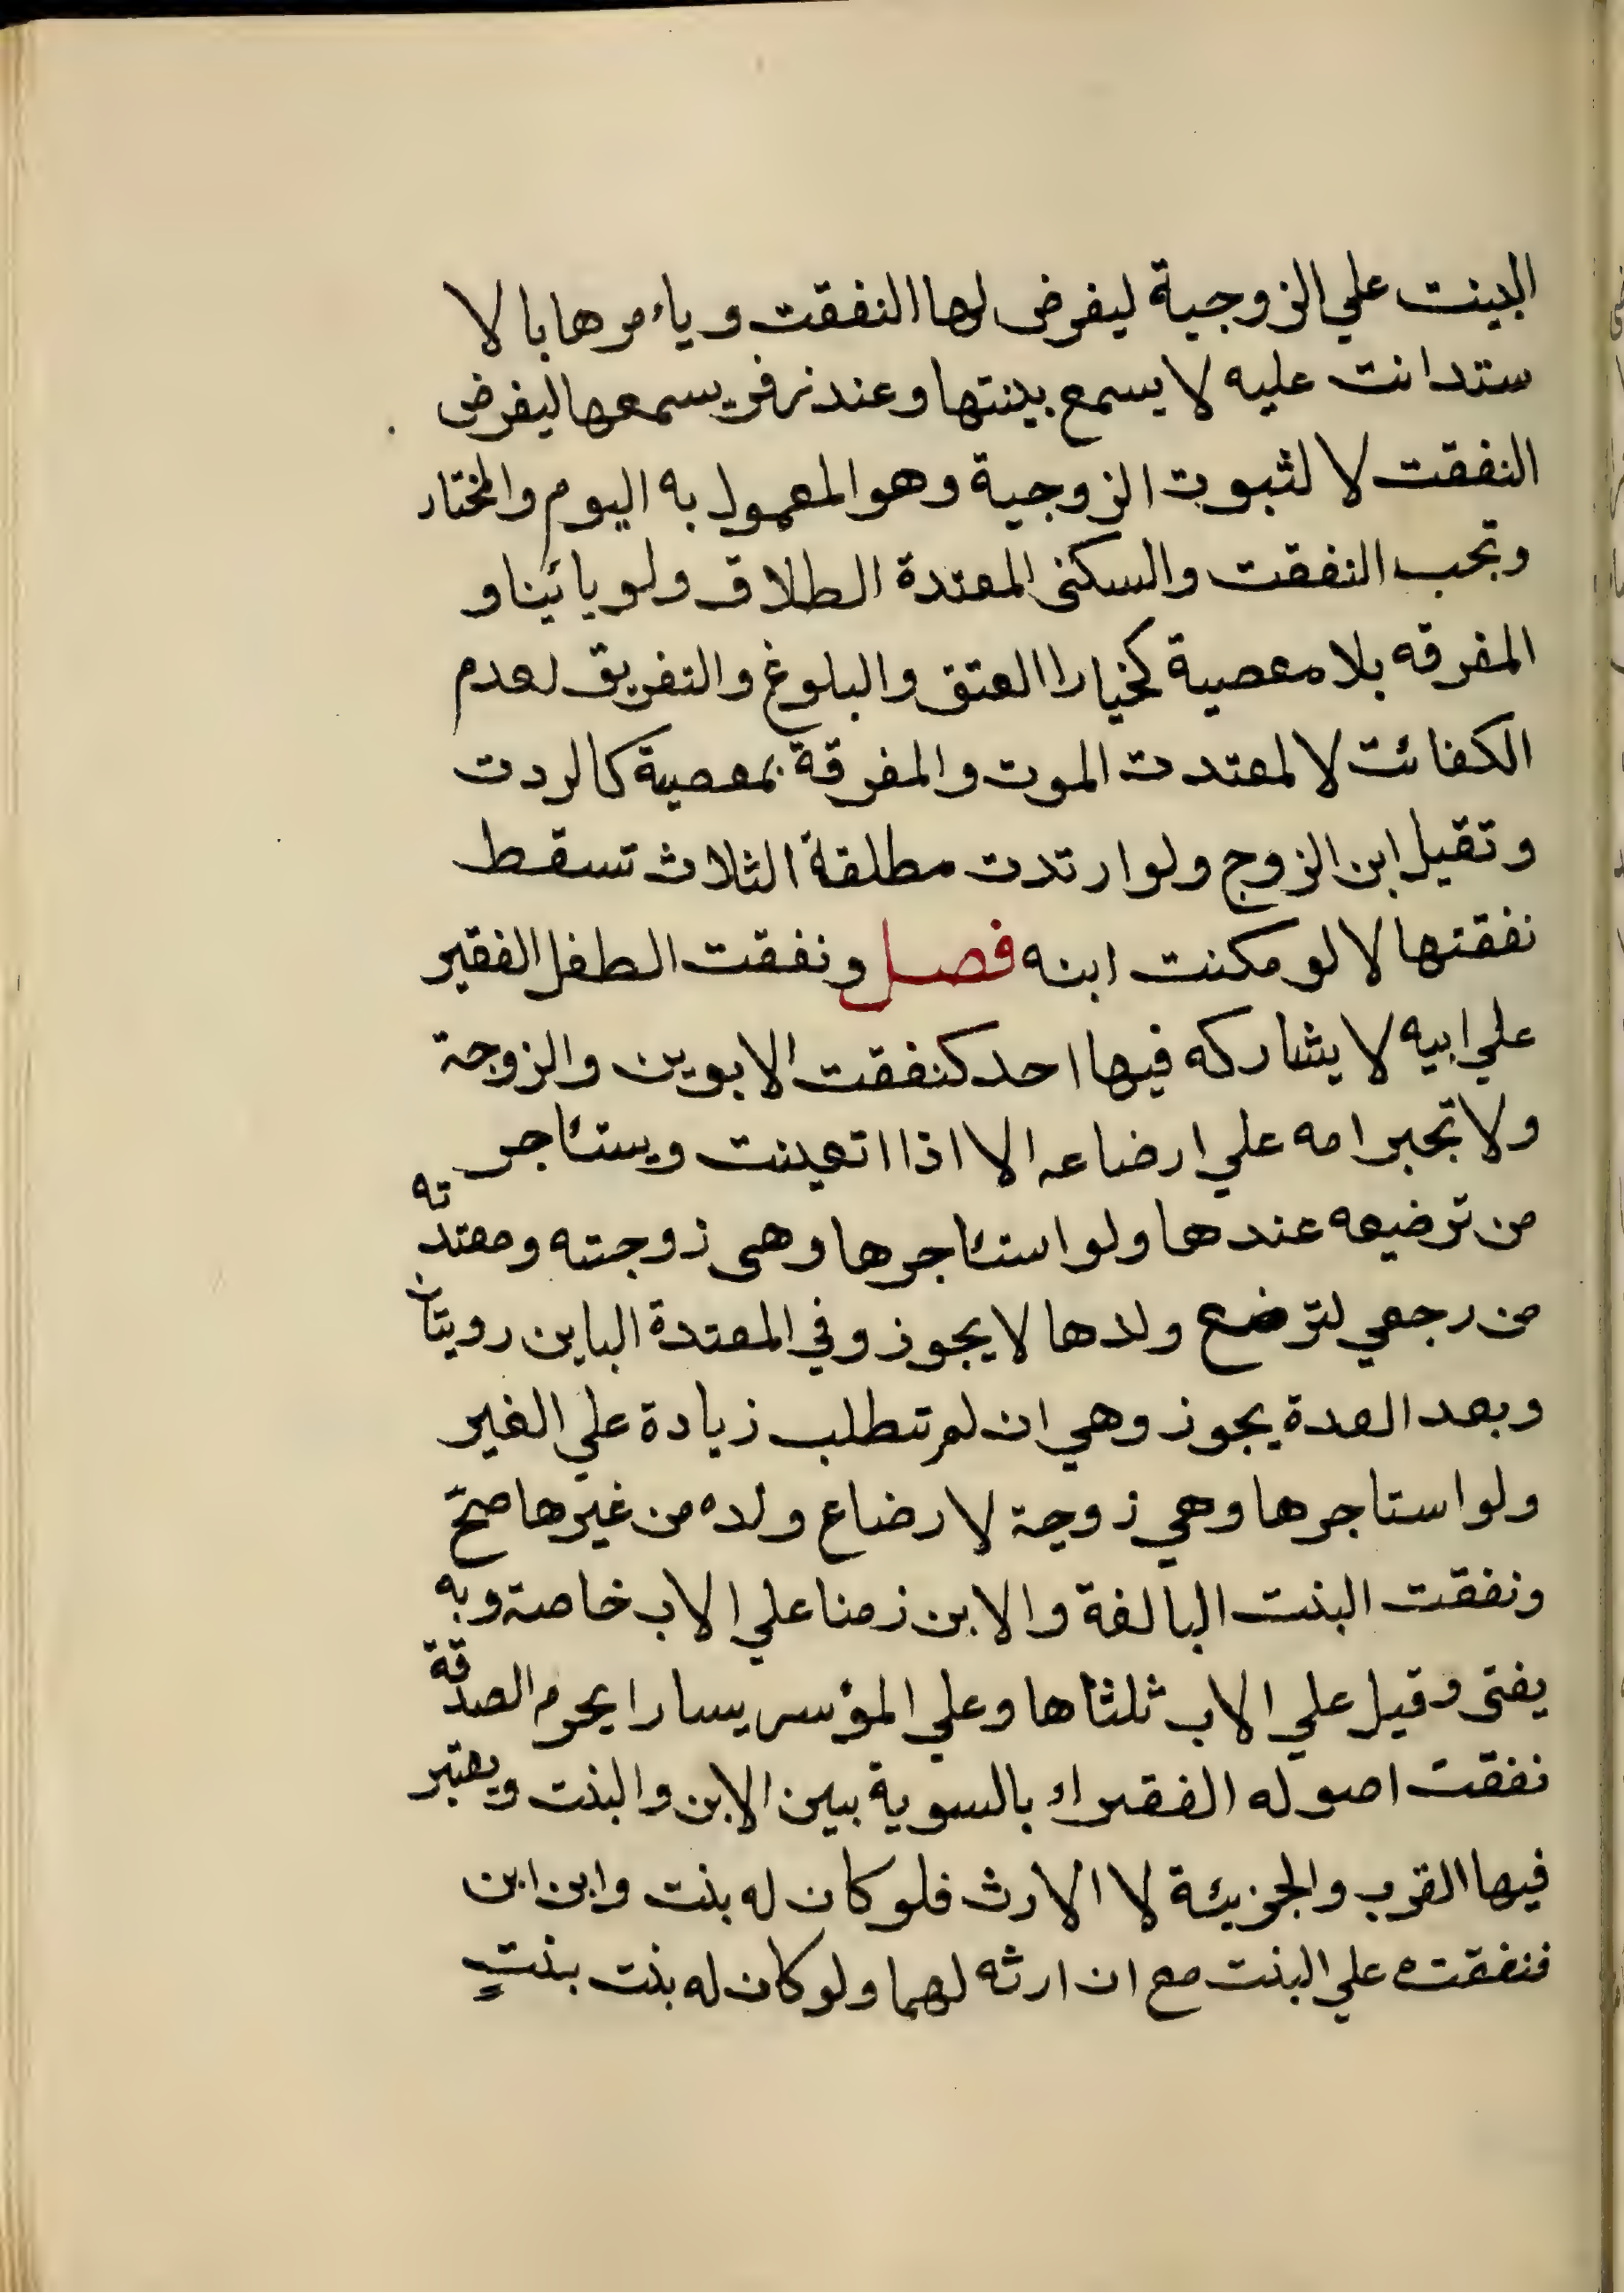 البينت علي الزوجية ليفرض لها النفقت وياء مرها بالا
ستدانت عليه لا يسمع بينتها وعند زفر يسمعها ليفرض
النفقت لا لثبوت الزوجية وهو المعمول به اليوم والمختار
وتجب النفقت والسكنى لمعتدة الطلاق ولو بائينا و
المفرقه بلا معصية كخيارا العتق والبلوغ والتفريق لعدم
الكفائت لا لمعتدت الموت والمفرقة بمعصية كالردت
وتقيل ابن الزوج ولو ارتدت مطلقة الثلاث تسقط
نفقتها لا لو مكنت ابنه فصل ونفقت الطفل الفقير
علي ابيه لا يشاركه فيها احد كنفقت الابوين والزوجة
ولا تجبر امه علي ارضاعه الا اذا اتعينت ويستئاجر
من ترضيعه عندها ولو استئاجرها وهى زوجته ومعتدته
من رجعي لترضع ولدها لا يجوز وفي المعتدة الباين رويتان
وبعد العدة يجوز وهي ان لم تتطلب زيادة علي الغير
ولو استاجرها وهي زوجة لارضاع ولده من غيرها صحّ
ونفقت البنت البالغة والابن زمنا علي الاب خاصة وبه
يفتى وقيل علي الاب ثلثاها وعلي المؤسر يسارا يحرم الصدقة
نفقت اصوله الفقراء بالسوية بين الابن والبنت ويعتبر
فيها القرب والجزيئة لا الارث فلو كان له بنت وابن ابن
فنفقته علي البنت مع ان ارثه لهما ولو كان له بنت بنتٍ